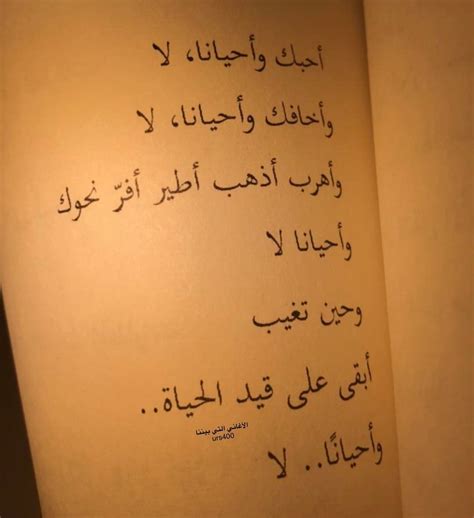 أحبك وأحيانا، لا
وأخافك وأحيانا، لا
وأهرب أذهب أطير أفرّ نحوك
وأحيانا لا
وحين تغيب
أبقى على قيد الحياة..
الأغاني التي بيننا
urs400
وأحيانًا.. لا